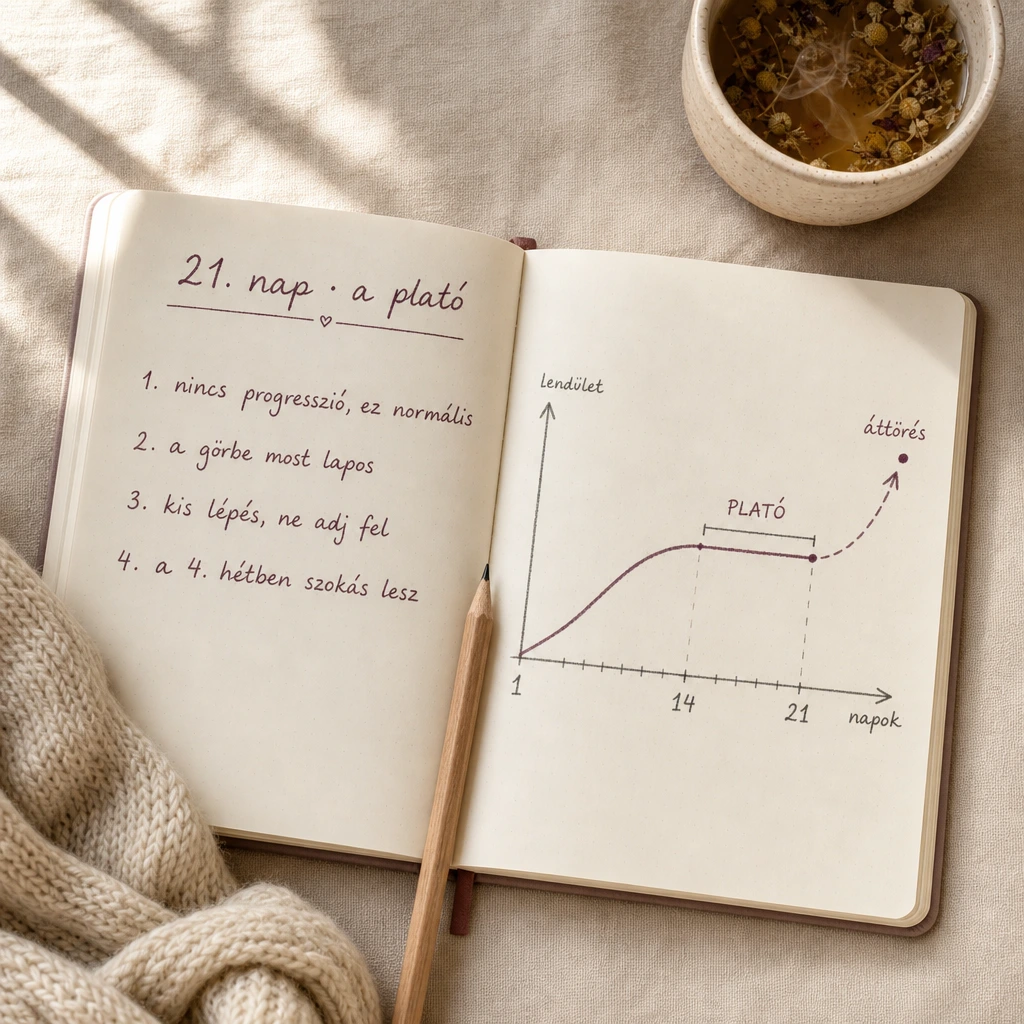 21. nap · a plató
1. nincs progresszió, ez normális
2. a görbe most lapos
3. kis lépés, ne adj fel
4. a 4. hétben szokás lesz
lendület
áttörés
PLATÓ
1
14
21
napok